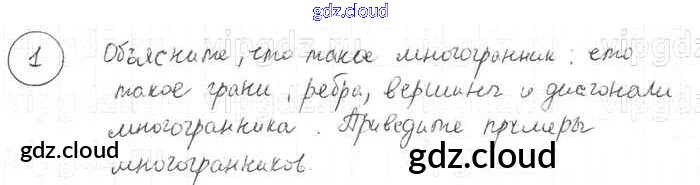 gdz.cloud
1 Объясните, что такое многогранник; что
такое грани, ребра, вершины и диагонали
многогранника. Приведите примеры
многогранников.
gdz.cloud
gdz.cloud